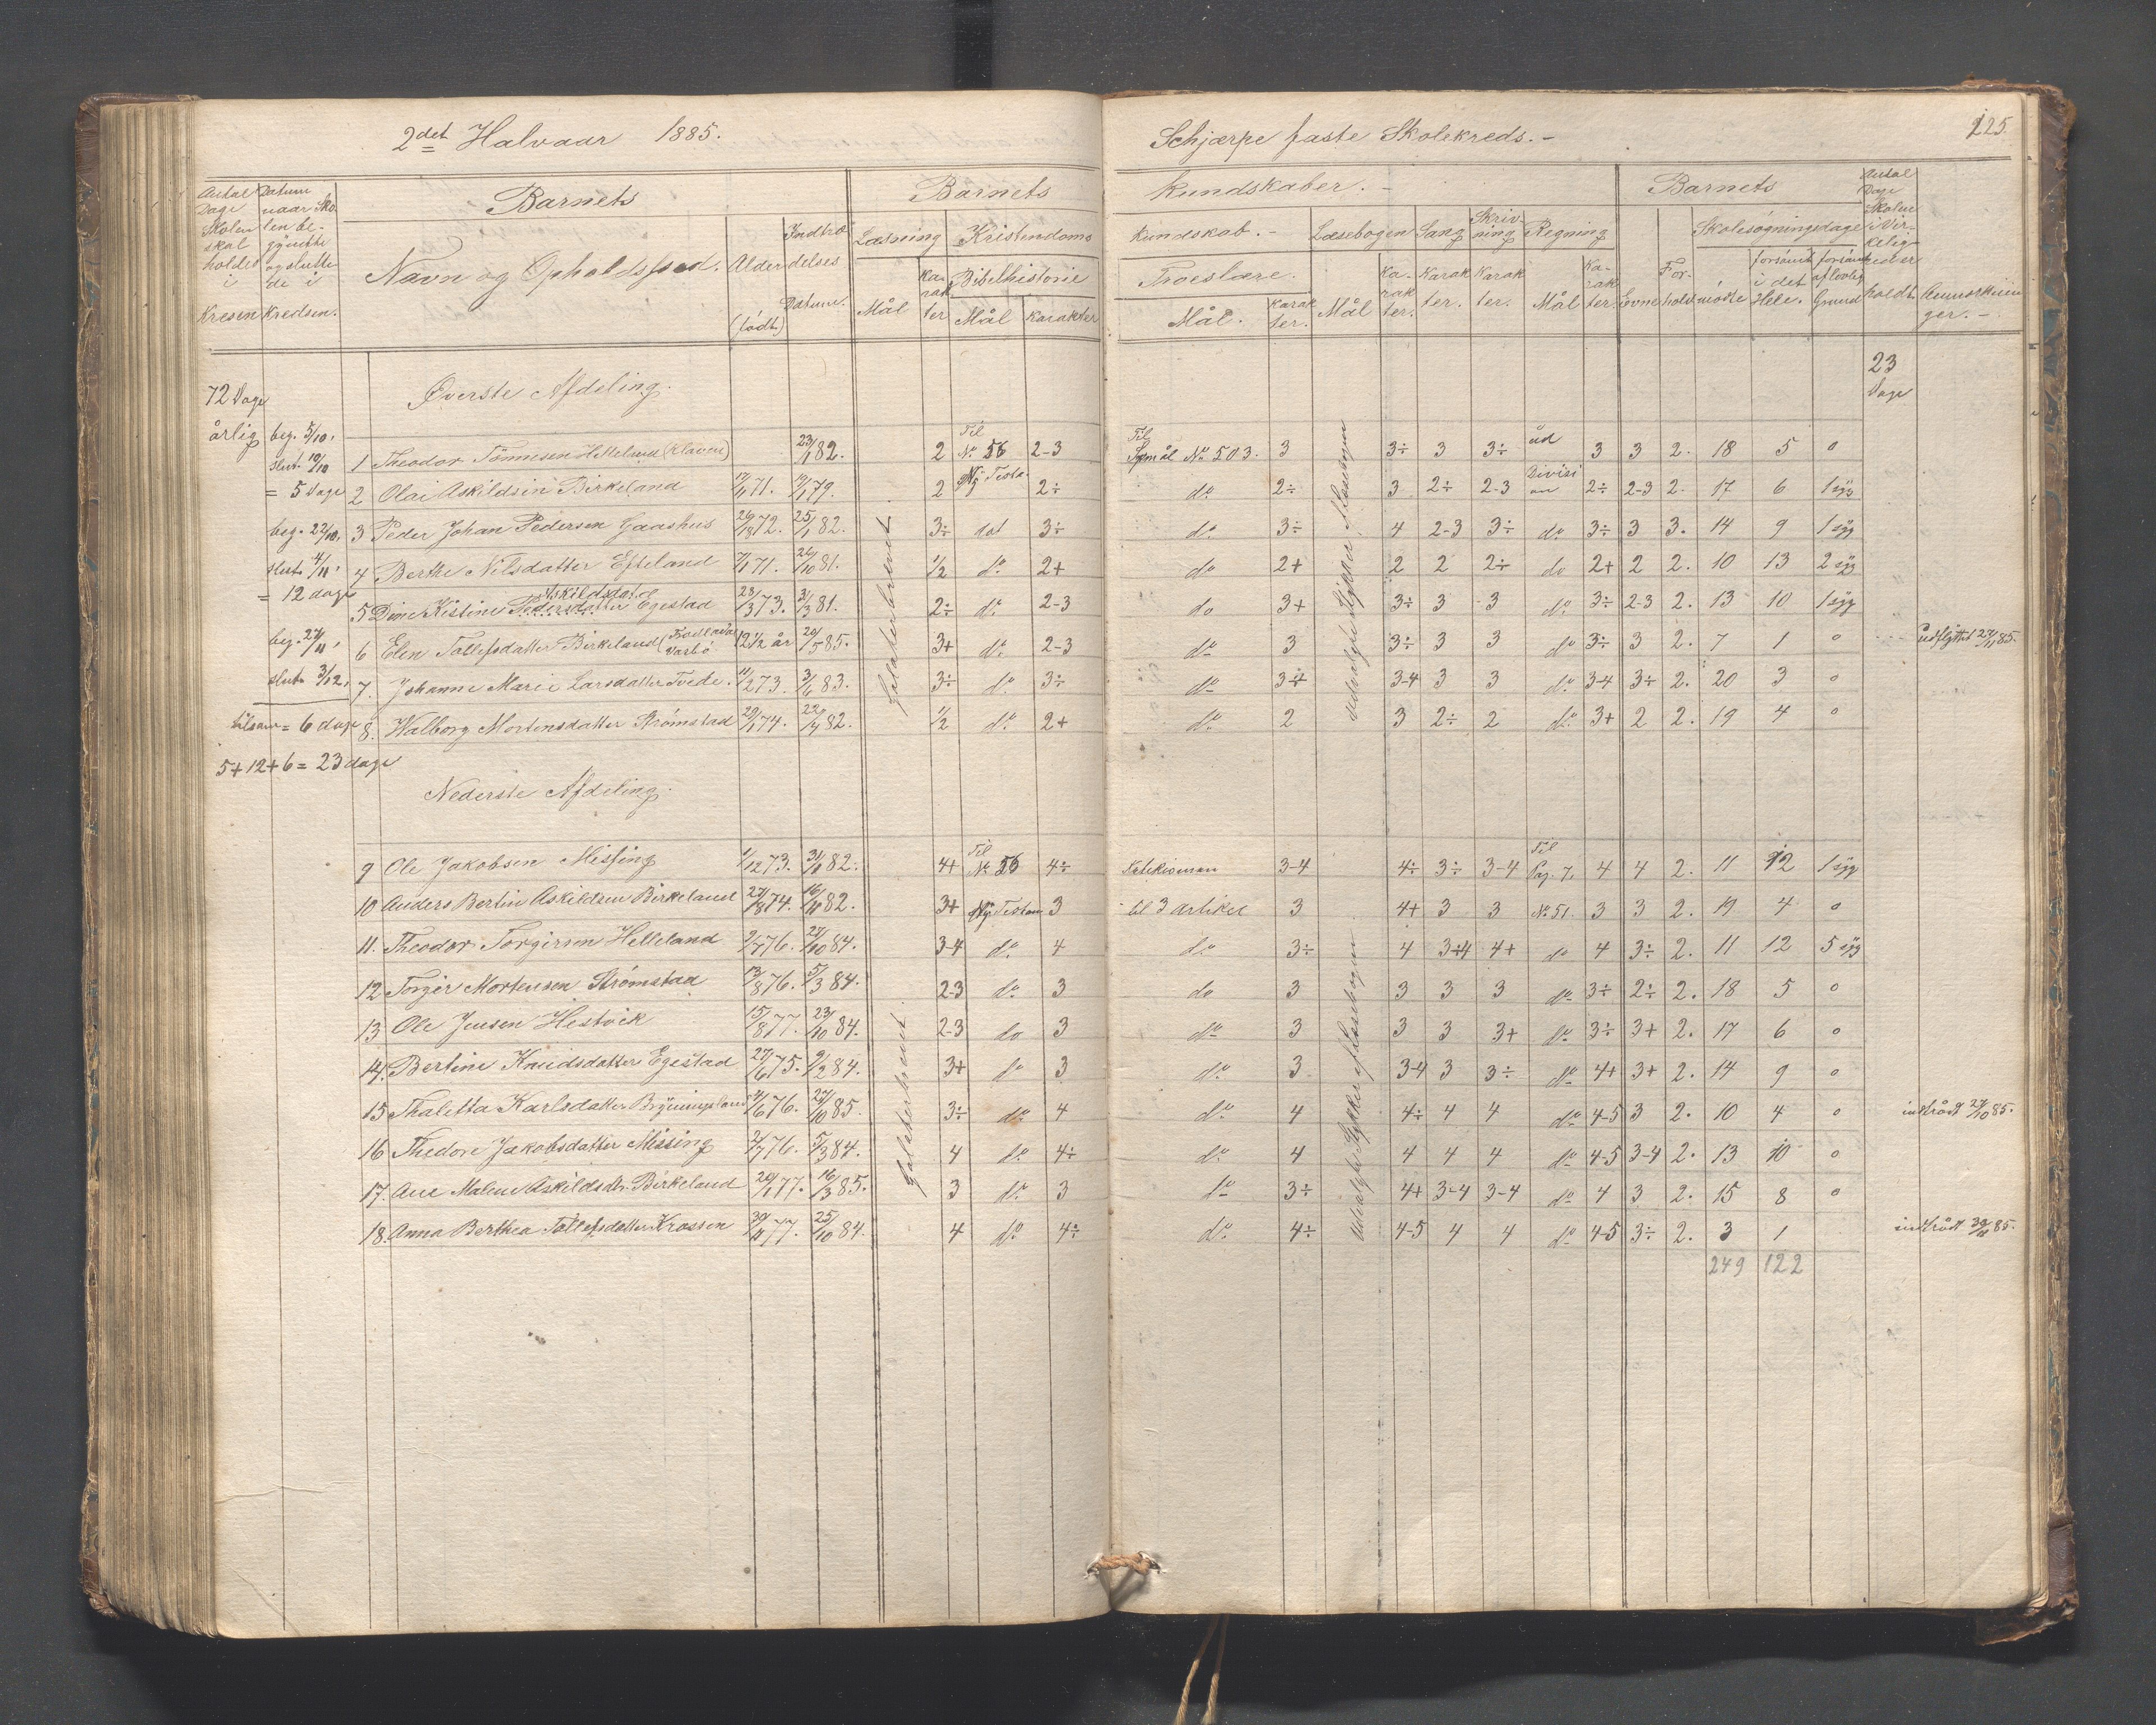 2det Halvaar 1885.
Schjærpe faste Skolekreds.-
225.
Antal Dage Skolen skal holdes i Kresen
Datum naar Skolen begyndte og sluttede i Kredsen.
Barnets
Navn og Opholdssted. Alder (født) Indtrædelses Datum.
Barnets
Læsning Mål Karakter
Kristendoms
Bibelhistorie Mål Karakter
Kundskaber.-
Kundskab.- Troeslære. Mål. Karakter.
Læsebogen Mål Karakter.
Sang Karakter.
Skrivning Karakter.
Regning Mål Karakter.
Barnets
Evne Forhold
Skolesøgningsdage
mødte forsømt i det Hele. forsømt af lovlig Grund
Antal Dage Skolen i Virkelighed er holdt.
Anmærkninger.-
72 Dage årlig
beg. 5/10.
slut. 10/10
= 5 Dage
beg. 22/10.
slut. 4/11.
= 12 dage
beg. 27/11.
slut. 3/12.
tilsam = 6 dage
5+12+6 = 23 dage
23 Dage
Øverste Afdeling.
Galaterbrevet
1 Theodor Tönnesen (Klaven) 23/1 82. 2 Til No 56 2-3 Til Spmål No 503. 3 3÷ 3 3÷ 3 3 2. 18 5 0
2 Olai Askildsen Birkeland 17/1 71. 79. 2 Ny Testa- 2÷ do. 2÷ 3 2÷ 2-3 Division 2÷ 2-3 2. 17 6 1 syg
3 Peder Johan Pedersen Gaashus 72. 25/1 82. 3÷ 3÷ do. 3÷ 4 2-3 3÷ do. 3÷ 3 3. 14 9 1 syg
4 Berthe Nilsdatter Efteland 71. 26/10 81. 1/2 do. 2+ do 2+ 2 2 2÷ do 2+ 2 2. 10 13 2 syg
Askildsdat
5 Dine Kistine Pedersdatter Egestad 23/3 73. 3/3 81. 2÷ do. 2-3 do 3+ 3÷ 3 3 do. 3÷ 2-3 2. 13 10 1 syg
6 Elen Tollefsdatter Birkeland 12 1/2 år 20/5 85. 3+ do. 2-3 do 3 3÷ 3 3 do 3÷ 3 2. 7 1 0 udflyttet 27/11 85.
7. Johanne Marie Larsdatter Tvede. 11/2 73. 3/6 83. 3÷ do. 3÷ do 3÷ 3-4 3 3 do. 3-4 3÷ 2. 20 3 0
8. Walborg Mortensdatter Strømstad 29/1 74. 82. 1/2 do. 2+ do. 2 3 2÷ 2 do. 3+ 2 2. 19 4 0
Nederste Afdeling.
Galaterbrevet
Udvalgte Stykker af Læsebogen
9 Ole Jakobsen Missing 1/12 73. 82. 4+ Til No 56 4÷ Katekismen 3-4 4÷ 3÷ 3-4 Til Pag. 7. 4 4 2. 11 12 1 syg
10 Anders Bertin Askildsen Birkeland 27/8 74. 16/10 82. 3+ Ny Testam 3 til 3 Artikel 3 4+ 3 3 No 51. 3 3 2. 19 4 0
11. Theodor Torgirsen Helleland 2/7 76. 27/10 84. 3-4 do. 4 do 3÷ 4 3÷4 4+ do 4 3÷ 2. 11 12 5 syg
12 Torger Mortensen Strømstad 13/8 76. 5/3 84. 2-3 do. 3 do 3 3 3 3 do 3÷ 2÷ 2. 18 5 0
13. Ole Jensen Hestvek 15/8 77. 23/10 84. 2-3 do 3 do 3 3 3 3+ do. 3÷ 3+ 2. 17 6 0
14. Bertine Knudsdatter Egestad 27/6 75. 9/2 84. 3+ do 3 do. 3 3-4 3 3÷ do. 4+ 3+ 2. 14 9 0
15 Thaletta Karlsdatter 76. 27/10 85. 3÷ do 4 do. 4 4÷ 4 4 do 4-5 3 2. 10 4 0 indtrådt 27/10 85.
16 Thedore Jakobsdatter Missing 2/7 76. 5/3 84. 4 do. 4÷ do. 4 4 4 4 do 4-5 3-4 2. 13 10 0
17. Ane Malene Askildsdtr. Birkeland 20/1 77. 16/3 85. 3 do. 3 do 3÷ 4+ 3-4 3-4 do 4 3 2. 15 8 0
18. Anna Berthea Tollefsdatter Krossen 77. 25/10 84. 4 do. 4÷ do. 4÷ 4-5 4 4 do 4-5 3÷ 2. 3 1 indtrådt 30/11 85.
249 122